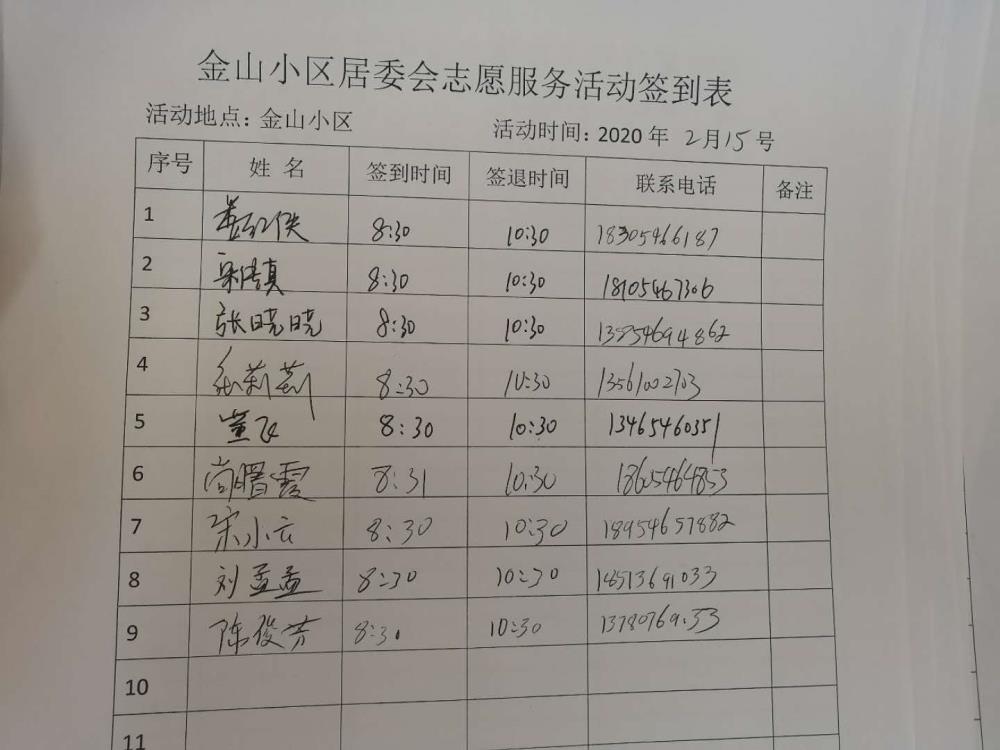 金山小区居委会志愿服务活动签到表
活动地点：金山小区 活动时间：2020 年 2月15号
序号 姓 名 签到时间 签退时间 联系电话 备注
1 8:30 10:30 18305466187
2 8:30 10:30 18105467306
3 张晓晓 8:30 10:30
4 张莉莉 8:30 10:30 13561002703
5 董飞 8:30 10:30 13465460351
6 尚曙霞 8:31 10:30 18605464853
7 宋小云 8:30 10:30 18954657882
8 刘孟孟 8:30 10:30
9 陈俊芳 8:30 10:30
10
11